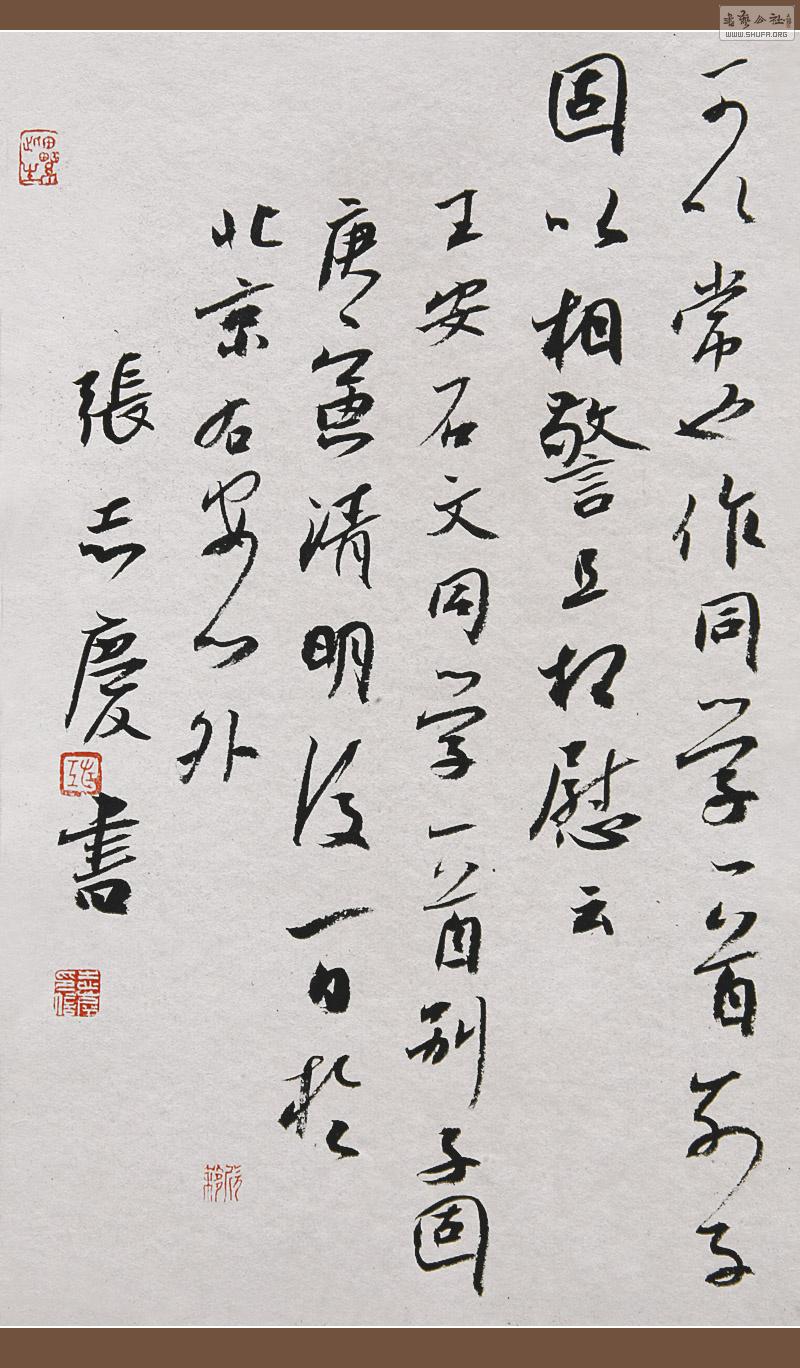 可以常也作同学一首别子
固以相警且相慰云
王安石文同学一首别子固
庚寅清明後一日於
北京右安门外
張志慶書
WWW.SHUFA.ORG